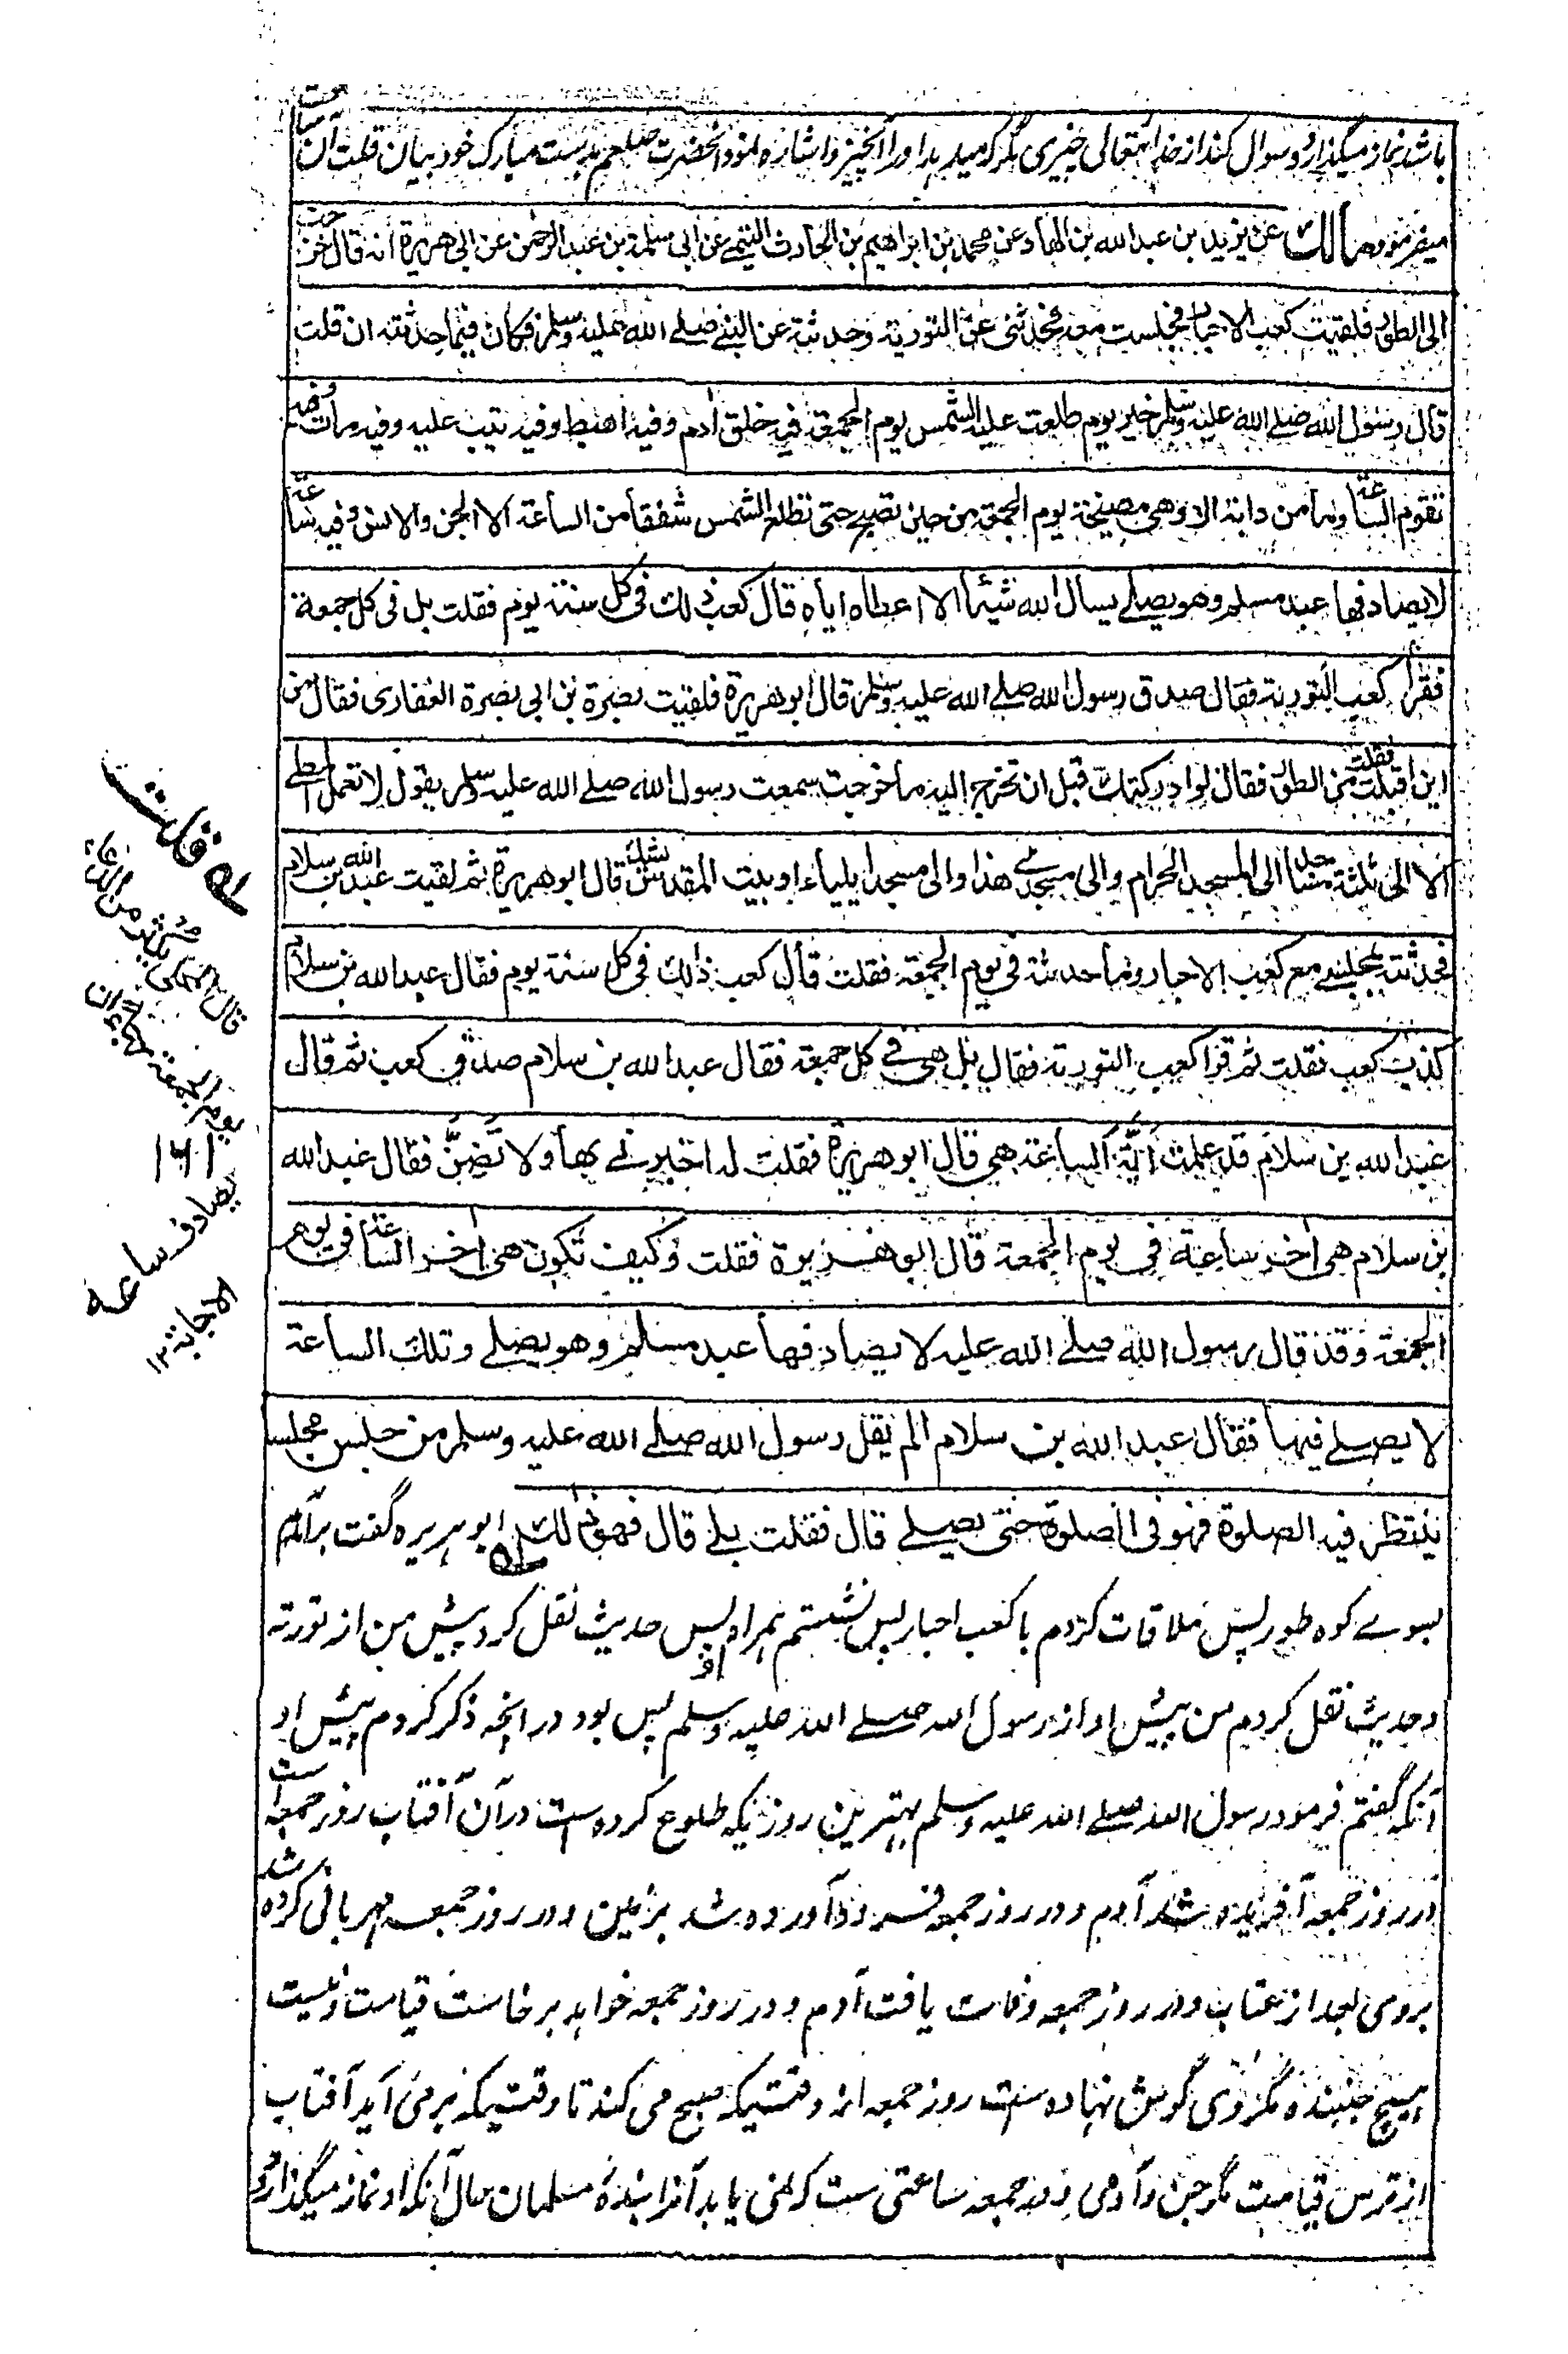 باشد نماز میگذارد و سوال کند از خدایتعالی چیزی مگر که میدهد اورا آنچیز و اشاره نمود آنحضرت صلعم بدست مبارک خود بیان قلت آن ساعت
میفرمود مالك عن يزيد بن عبدالله بن الهاد عن محمد بن ابراهيم بن الحارث التيمے عن ابی سلمة بن عبدالرحمن عن ابی هريرة انه قال خرجت
الی الطور فلقيت كعب الاحبار فجلست معه فحدثنی عن التورية وحدثته عن النبے صلے الله عليه وسلم فكان فيما حدثته ان قلت
قال رسول الله صلے الله عليه وسلم خير يوم طلعت عليه الشمس يوم الجمعة فيه خلق ادم وفيه اهبط وفيه تيب عليه وفيه مات وفيه
تقوم الساعة وما من دابة الا وهی مصيخة يوم الجمعة من حين تصبح حتی تطلع الشمس شفقا من الساعة الا الجن والانس وفيه ساعة
لا يصادفها عبد مسلم وهو يصلے يسال الله شيئا الا اعطاه اياه قال كعب ذلك فی كل سنة يوم فقلت بل فی كل جمعة
فقرأ كعب التورية فقال صدق رسول الله صلے الله عليه وسلم قال ابو هريرة فلقيت بصرة بن ابی بصرة الغفاری فقال من
اين اقبلت فقلت من الطور فقال لو ادركتك قبل ان تخرج اليه ما خرجت سمعت رسول الله صلے الله عليه وسلم يقول لا تعمل المطے
الا الی ثلثة مساجد الی المسجد الحرام والی مسجدے هذا والی مسجد ايلياء او بيت المقدس شك قال ابو هريرة ثم لقيت عبد الله بن سلام
فحدثته بمجلسے مع كعب الاحبار وما حدثته فی يوم الجمعة فقلت قال كعب ذالك فی كل سنة يوم فقال عبدالله بن سلام
كذب كعب فقلت ثم قرا كعب التورية فقال بل هی فے كل جمعة فقال عبدالله بن سلام صدق كعب ثم قال
عبدالله بن سلام قد علمت اَيَّةُ الساعة هی قال ابو هريرة فقلت له اخبرنے بها ولا تَضِنَّ فقال عبدالله
بن سلام هی اخر ساعة فی يوم الجمعة قال ابو هريرة فقلت وكيف تكون هی اخر الساعة فی يوم
الجمعة وقد قال رسول الله صلے الله عليه لا يصادفها عبد مسلم وهو يصلے وتلك الساعة
لا يصلے فيها فقال عبدالله بن سلام الم يقل رسول الله صلے الله عليه وسلم من جلس مجلسا
ينتظر فيه الصلوة فهو فی الصلوة حتی يصلے قال فقلت بلے قال فهو ذلك ابو ہریرہ گفت برآمدم
بسوے کوہ طور پس ملاقات کردم با کعب احبار پس نشستم ہمراہ او پس حدیث نقل کرد پیش من از توریة
و حدیث نقل کردم من پیش او از رسول اللہ صلے اللہ علیہ وسلم پس بود در آنچہ ذکر کردم پیش او
آنکہ گفتم فرمود رسول اللہ صلے اللہ علیہ وسلم بہترین روزیکہ طلوع کردہ ست در آن آفتاب روز جمعہ است
در روز جمعہ آفریدہ شد آدم و در روز جمعہ فرود آوردہ شد بزمین و در روز جمعہ مہربانی کردہ شد
بروی بعد از عتاب و در روز جمعہ وفات یافت آدم و در روز جمعہ خواہد برخاست قیامت و نیست
ہیچ جنبندہ مگر وی گوش نہادہ ست روز جمعہ از وقتیکہ صبح می کند تا وقتیکہ برمی آید آفتاب
از ترس قیامت مگر جن و آدمی و در جمعہ ساعتی ست کہ نمی یابد آنرا بندۂ مسلمان حال آنکہ او نماز میگذارد
له قلت
يوم الجمعة
يصادف ساعه
الاجابة ١٢